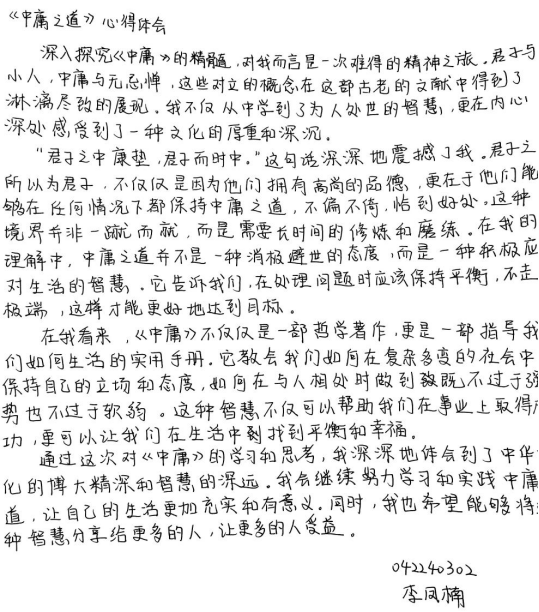 《中庸之道》心得体会
深入探究《中庸》的精髓，对我而言是一次难得的精神之旅。君子与
小人，中庸与无忌惮，这些对立的概念在这部古老的文献中得到了
淋漓尽致的展现。我不仅从中学到了为人处世的智慧，更在内心
深处感受到了一种文化的厚重和深沉。
“君子之中庸垫，君子而时中。”这句话深深地震撼了我。君子之
所以为君子，不仅仅是因为他们拥有高尚的品德，更在于他们能
够在任何情况下都保持中庸之道，不偏不倚，恰到好处。这种
境界并非一蹴而就，而是需要长时间的修炼和磨练。在我的
理解中，中庸之道并不是一种消极避世的态度，而是一种积极应
对生活的智慧。它告诉我们，在处理问题时应该保持平衡，不走
极端，这样才能更好地达到目标。
在我看来，《中庸》不仅仅是一部哲学著作，更是一部指导我
们如何生活的实用手册。它教会我们如何在复杂多变的社会中
保持自己的立场和态度，如何在与人相处时做到致既不过于强
势也不过于软弱。这种智慧不仅可以帮助我们在事业上取得成
功，更可以让我们在生活中到找到平衡和幸福。
通过这次对《中庸》的学习和思考，我深深地体会到了中华
化的博大精深和智慧的深远。我会继续努力学习和实践中庸
道，让自己的生活更加充实和有意义。同时，我也希望能够将
种智慧分享给更多的人，让更多的人受益。
042240302
李凤楠